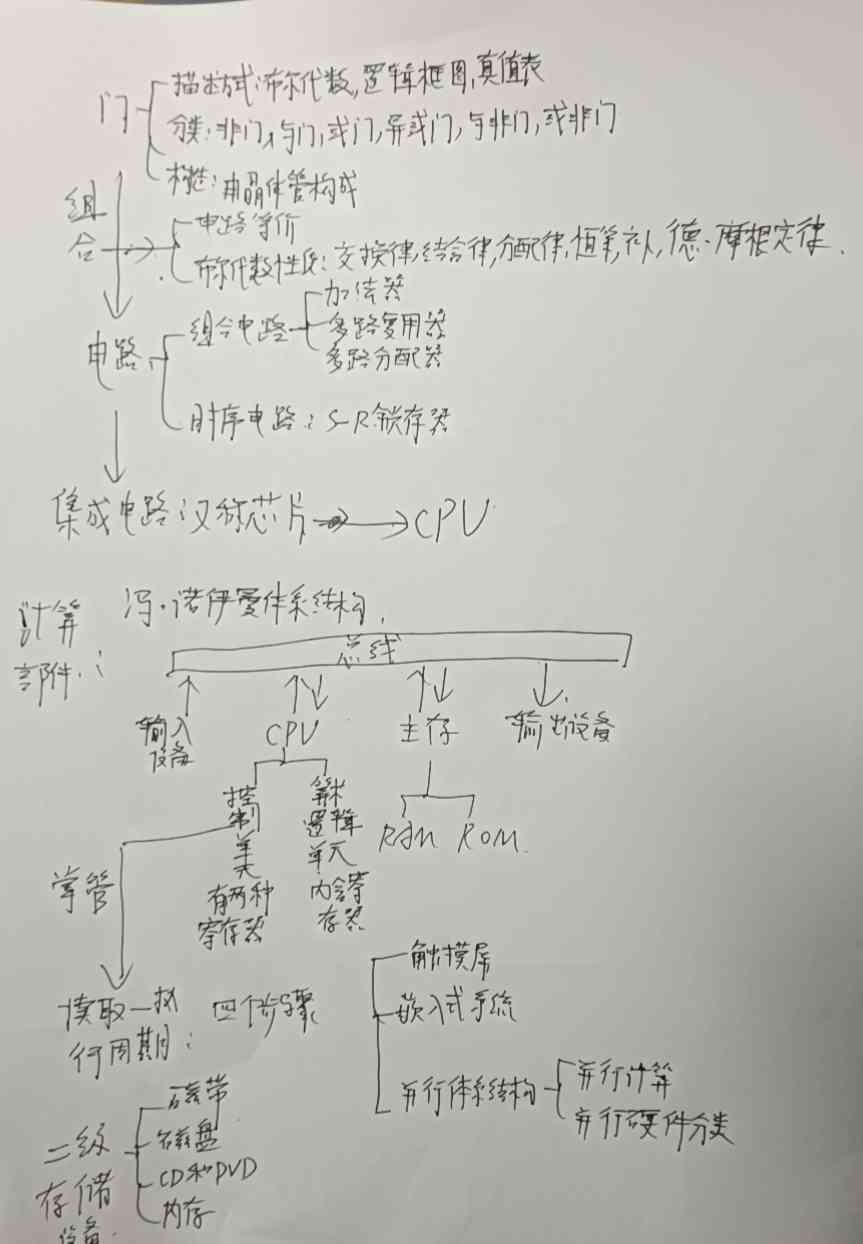 门
描述方式:布尔代数,逻辑框图,真值表
分类:非门,与门,或门,异或门,与非门,或非门
构造:由晶体管构成
组合
电路等价
布尔代数性质:交换律,结合律,分配律,恒等,补,德·摩根定律.
电路
组合电路
加法器
多路复用器
多路分配器
时序电路:S-R锁存器
集成电路:又称芯片
CPU
计算
部件:
冯·诺伊曼体系结构.
总线
输入
设备
CPU
主存
输出设备
控制单元
有两种
寄存器
算术
逻辑
单元
内含寄
存器
RAM ROM
掌管
读取—执
行周期:
四个步骤
触摸屏
嵌入式系统
并行体系结构
并行计算
并行硬件分类
二级
存储
设备.
磁带
磁盘
CD和DVD
内存